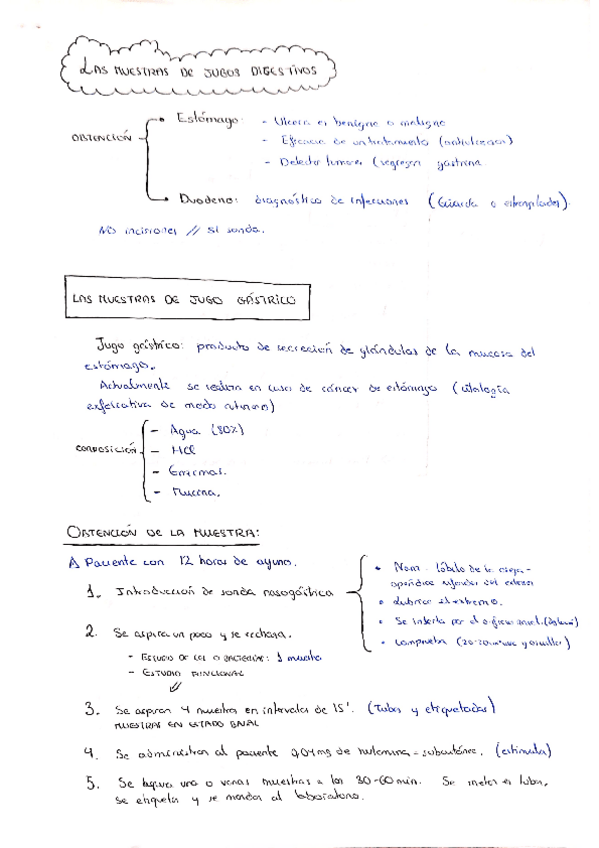 LAS MUESTRAS DE JUGOS DIGESTIVOS
OBTENCIÓN
Estómago:
- Ulcera es benigna o maligna
- Eficacia de un tratamiento (antiulceroso)
- Detecta tumores (segregan gastrina
Duodeno: diagnóstico de infecciones (Giardia o estrongiloides).
No incisiones // si sonda.
LAS MUESTRAS DE JUGO GÁSTRICO
Jugo gástrico: producto de secreción de glándulas de la mucosa del
estómago.
Actualmente se realiza en caso de cáncer de estómago (citología
exfoliativa de modo rutinario)
COMPOSICIÓN
- Agua (80%)
- HCl
- Enzimas.
- Mucina.
OBTENCIÓN DE LA MUESTRA:
A Paciente con 12 horas de ayuno.
1. Introducción de sonda nasogástrica
• lóbulo de la oreja -
apéndice
• Lubrica el extremo.
• Se inserta por el orificio
• Comprueba
2. Se aspira un poco y se rechaza.
- ESTUDIO DE 1 muestra
- ESTUDIO FUNCIONAL
3. Se aspiran 4 muestras en intervalos de 15'. (Tubos y etiquetadas)
MUESTRAS EN ESTADO BASAL
4. Se administran al paciente mg de subcutánea. (estimula)
5. Se una o varias muestras a los 30-60 min. Se meten en tubos,
se etiquetan y se mandan al laboratorio.